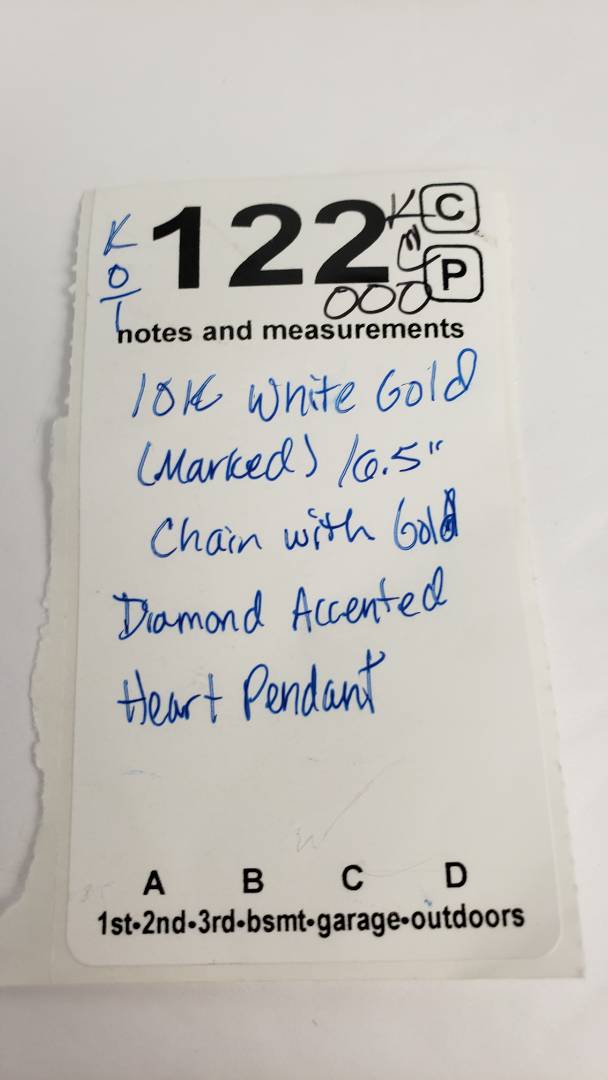 K
O
1
122
C
P
000
notes and measurements
10K White Gold
(Marked) 16.5"
Chain with Gold
Diamond Accented
Heart Pendant
A B C D
1st•2nd•3rd•bsmt•garage•outdoors